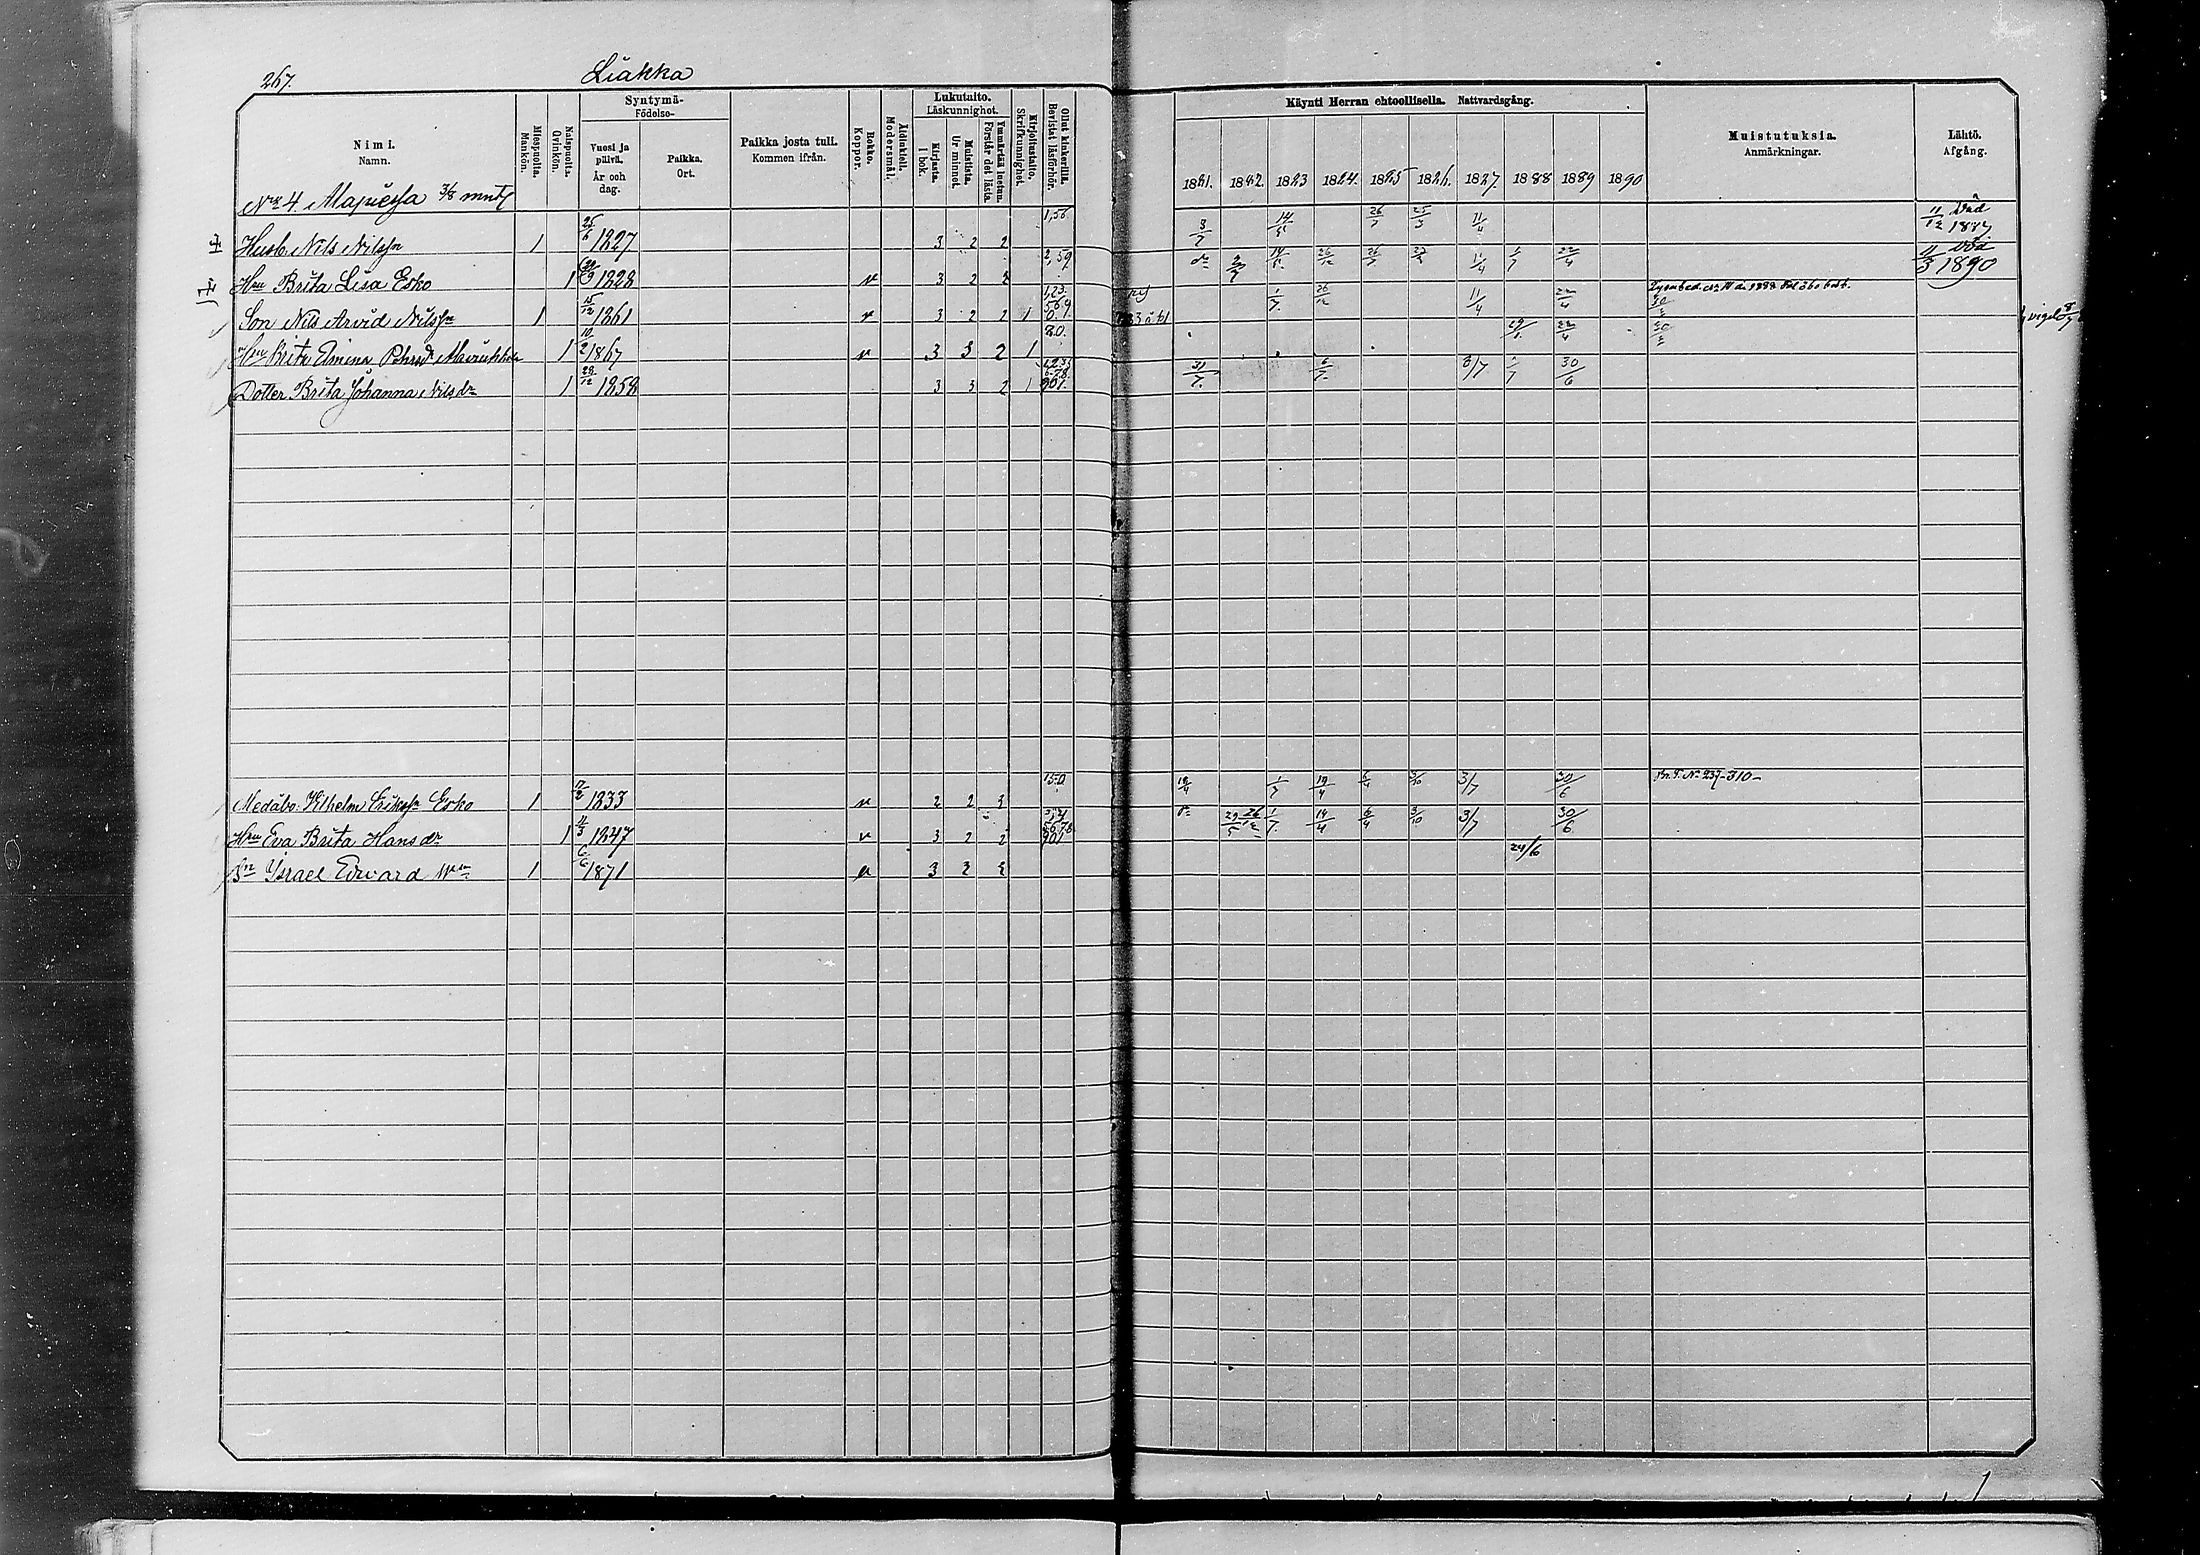 267.
Liakka
Nimi.
Namn.
Miespuolia.
Mankön.
Naispuolia.
Qvinkön.
Syntymä-
Födelse-
Vuosi ja päivä.
År och dag.
Paikka.
Ort.
Paikka josta tuli.
Kommen ifrån.
Rokko.
Koppor.
Äidinkieli.
Modersmål.
Lukutaito.
Läskunnighet.
Kirjasta.
I bok.
Muistista.
Ur minnet.
Ymmärtää luetun.
Förstår det lästa.
Kirjoitustaito.
Skrifkunnighet.
Ollut kinkerillä.
Bevistat läsförhör.
Käynti Herran ehtoollisella. Nattvardsgång.
1881. 1882. 1883 1884. 1885 1886. 1887 1888 1889 1890
Muistutuksia.
Anmärkningar.
Lähtö.
Afgång.
No 4. Majuessa 3/8 mntl
Husb. Nils Nilsson 1 25/6 1827 3 2 2 1,56 3/7 14/5 26/7 25/3 11/4 11/12 Död 1887
Hru Brita Lisa Esko 1 1828 v 3 2 2 2,59 do 26/12 26/7 1/7 22/4 11/3 död 1890
Son Nils Arvid Nilsson 1 15/12 1861 v 3 2 2 1 1/7. 26/12 11/4 22/4
Hru Brita Elmina 1 10/2 1867 v 3 3 2 1 80. 22/4
Dotter Brita Johanna Nilsdr 1 28/12 1858 3 3 2 1 901. 31/7. 6/7. 3/7 1/7 30/6
Medåbo: Vilhelm Eriksson Esko 1 17/2 1833 v 2 2 2 150 19/4 1/7 19/4 6/4 3/10 3/7 30/6 No 237-310-
Hru Eva Brita Hansdr 1 11/3 1847 v 3 2 2 901 do 29/5 26/12 1/7. 19/4 6/4 3/10 3/7 30/6
Sn Israel Edvard 1 6/6 1871 v 3 2 2 24/6